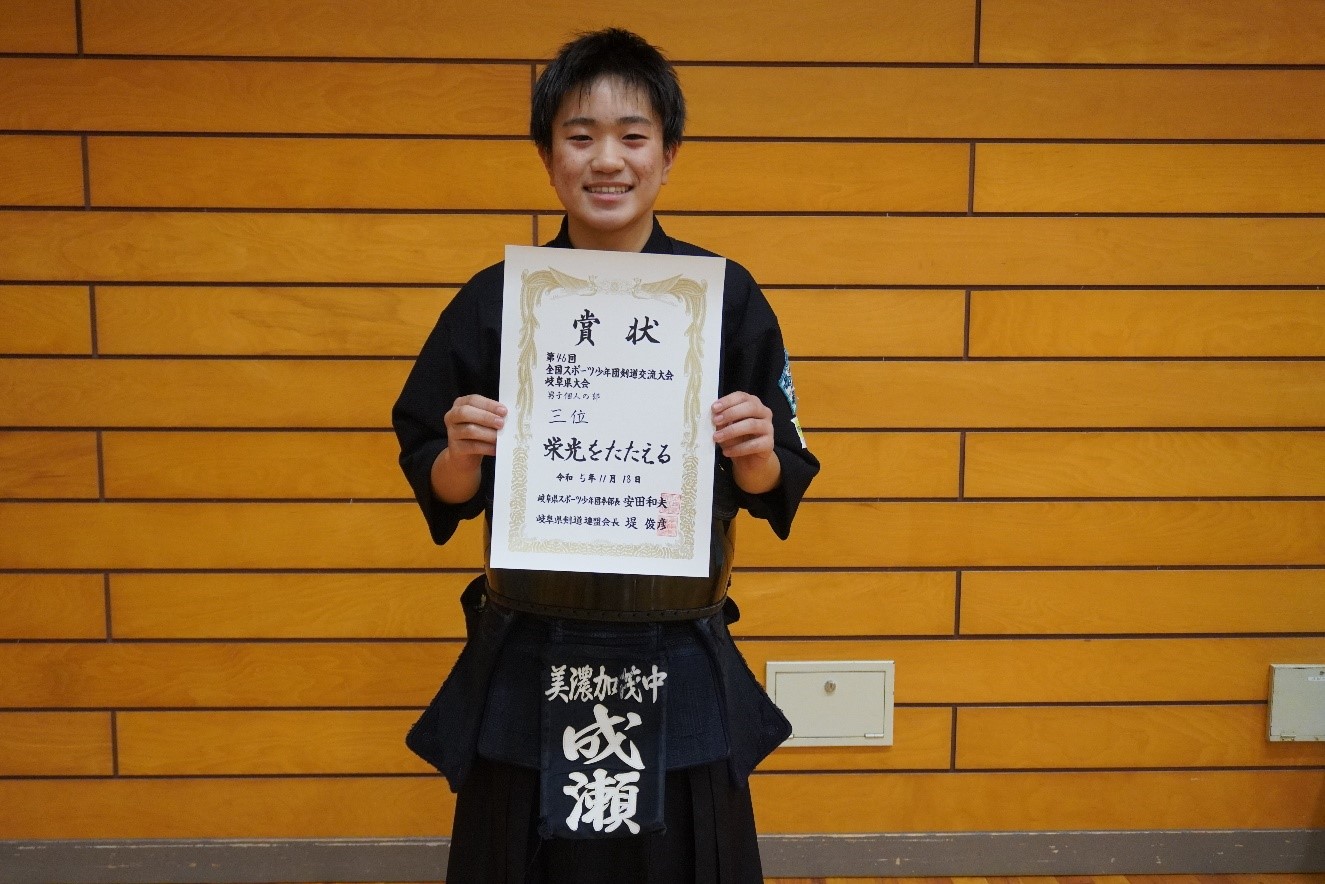 賞状
第46回
全国スポーツ少年団剣道交流大会
岐阜県大会
男子個人の部
三位
栄光をたたえる
令和5年11月18日
岐阜県スポーツ少年団本部長 安田和夫
岐阜県剣道連盟会長 堤 俊彦
美濃加茂中
成瀬